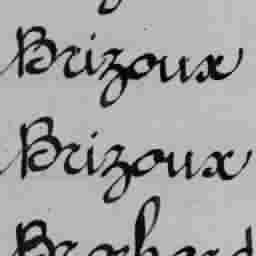 Brizoux
Brizoux